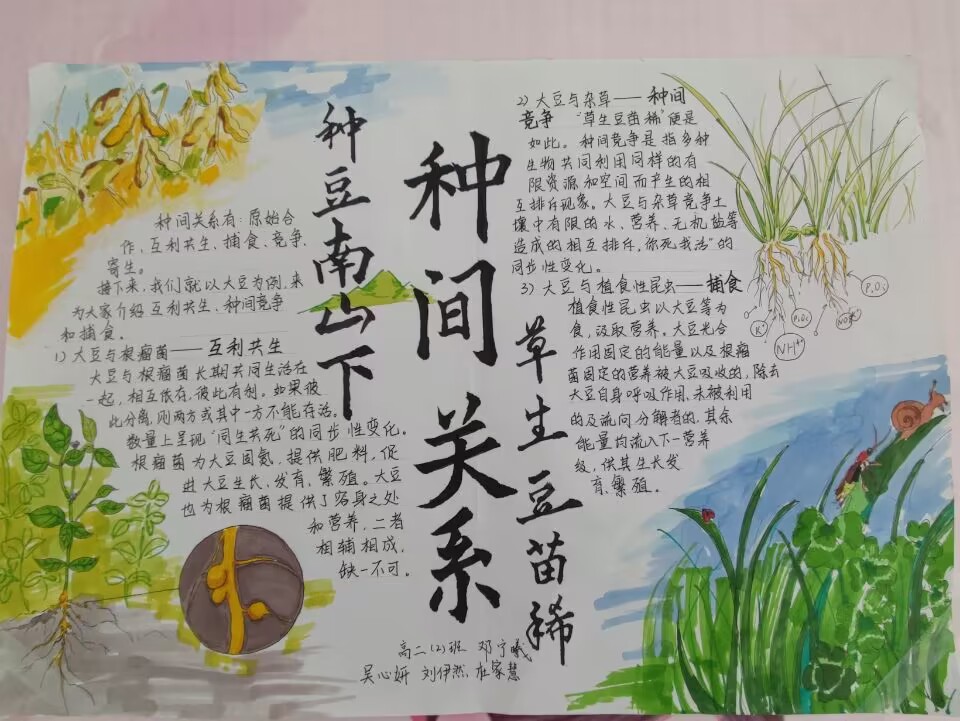 种豆南山下
种间关系
草生豆苗稀
种间关系有：原始合
作、互利共生、捕食、竞争、
寄生。
接下来，我们就以大豆为例，来
为大家介绍互利共生、种间竞争
和捕食。
1）大豆与根瘤菌——互利共生
大豆与根瘤菌长期共同生活在
一起，相互依存，彼此有利。如果彼
此分离，则两方或其中一方不能存活。
数量上呈现“同生共死”的同步性变化。
根瘤菌为大豆固氮，提供肥料，促
进大豆生长、发育、繁殖。大豆
也为根瘤菌提供了容身之处
和营养，二者
相辅相成，
缺一不可。
2）大豆与杂草——种间
竞争 “草生豆苗稀”便是
如此。种间竞争是指多种
生物共同利用同样的有
限资源和空间而产生的相
互排斥现象。大豆与杂草竞争土
壤中有限的水、营养、无机盐等
造成的相互排斥，“你死我活”的
同步性变化。
3）大豆与植食性昆虫——捕食
植食性昆虫以大豆等为
食，汲取营养。大豆光合
作用固定的能量以及根瘤
菌固定的营养被大豆吸收的，除去
大豆自身呼吸作用、未被利用
的及流向分解者的，其余
能量均流入下一营养
级，供其生长发
育、繁殖。
K⁺
P₂O₅
P₂O₅
NH⁺
高二(2)班 邓宁曦
吴心妍 刘伊然 杜家慧